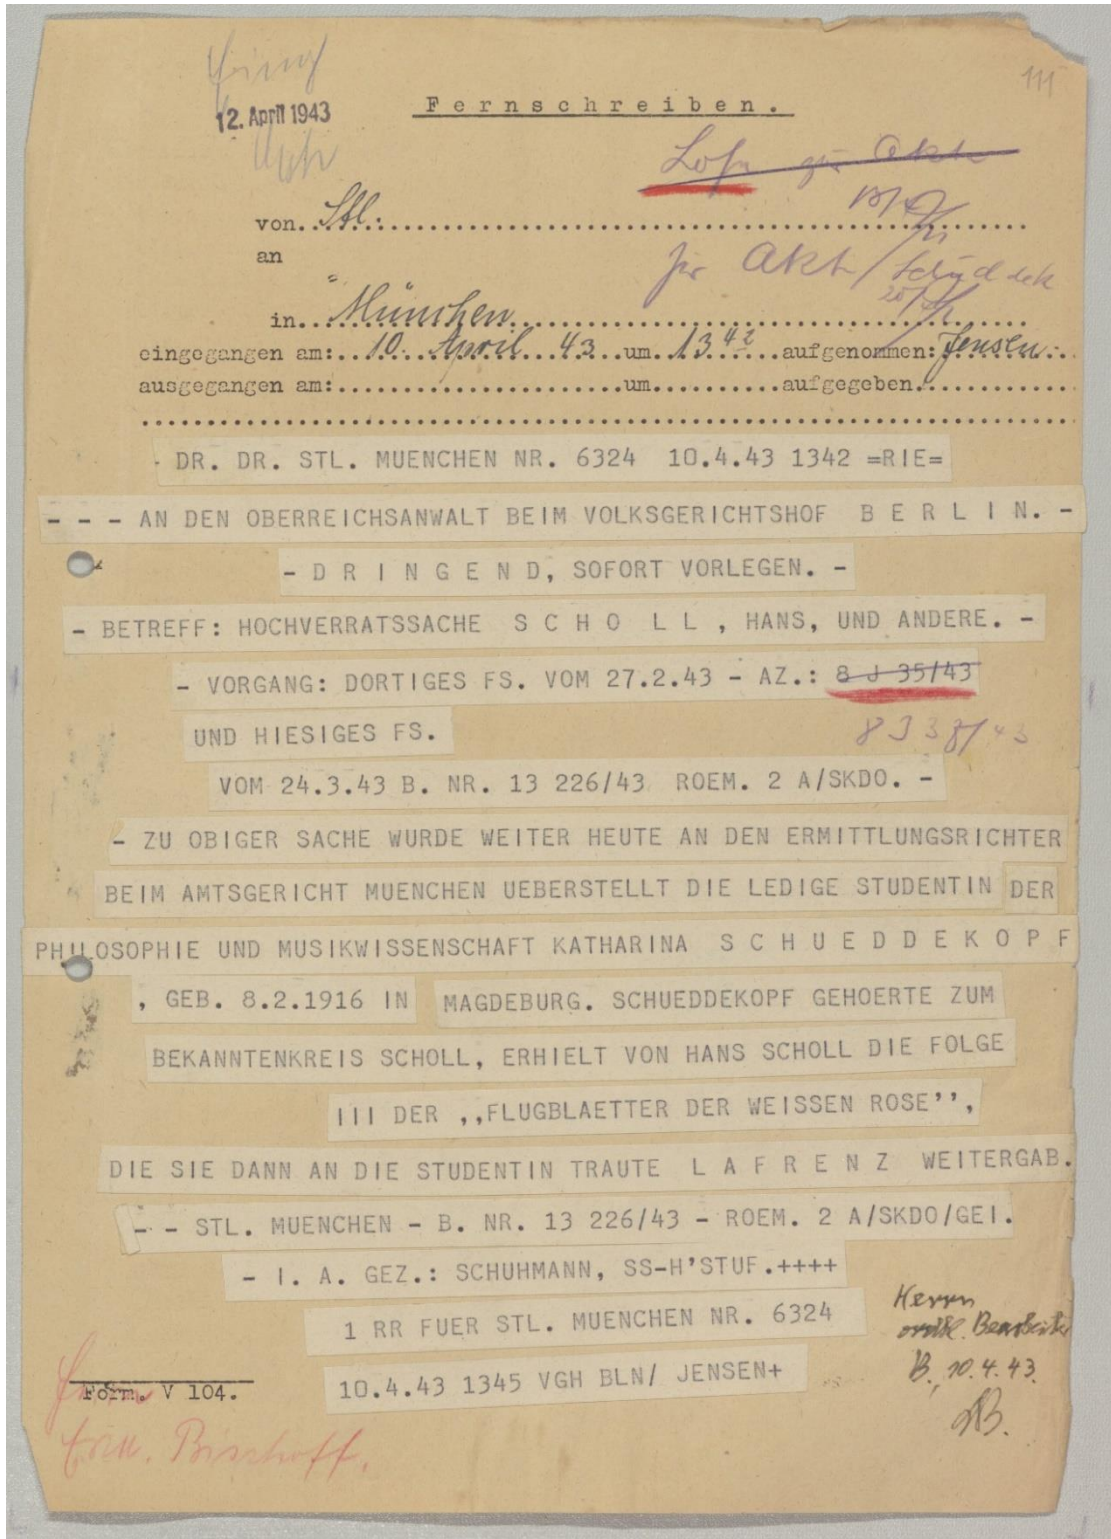 111
12. April 1943
Fernschreiben.
zur Akte
von Stl.
an
zur Akte
in München
eingegangen am: 10. April 43 um 13 42 aufgenommen: Jensen
ausgegangen am: um aufgegeben
- DR. DR. STL. MUENCHEN NR. 6324 10.4.43 1342 =RIE=
- - - AN DEN OBERREICHSANWALT BEIM VOLKSGERICHTSHOF B E R L I N. -
- D R I N G E N D, SOFORT VORLEGEN. -
- BETREFF: HOCHVERRATSSACHE S C H O L L , HANS, UND ANDERE. -
- VORGANG: DORTIGES FS. VOM 27.2.43 - AZ.: 8 J 35/43
UND HIESIGES FS.
VOM 24.3.43 B. NR. 13 226/43 ROEM. 2 A/SKDO. -
- ZU OBIGER SACHE WURDE WEITER HEUTE AN DEN ERMITTLUNGSRICHTER
BEIM AMTSGERICHT MUENCHEN UEBERSTELLT DIE LEDIGE STUDENTIN DER
PHILOSOPHIE UND MUSIKWISSENSCHAFT KATHARINA S C H U E D D E K O P F
, GEB. 8.2.1916 IN MAGDEBURG. SCHUEDDEKOPF GEHOERTE ZUM
BEKANNTENKREIS SCHOLL, ERHIELT VON HANS SCHOLL DIE FOLGE
III DER ,,FLUGBLAETTER DER WEISSEN ROSE'',
DIE SIE DANN AN DIE STUDENTIN TRAUTE L A F R E N Z WEITERGAB.
- - STL. MUENCHEN - B. NR. 13 226/43 - ROEM. 2 A/SKDO/GEI.
- I. A. GEZ.: SCHUHMANN, SS-H'STUF.++++
1 RR FUER STL. MUENCHEN NR. 6324
10.4.43 1345 VGH BLN/ JENSEN+
Herrn
Bearbeiter
B., 10.4.43.
Form. V 104.
Bischoff.